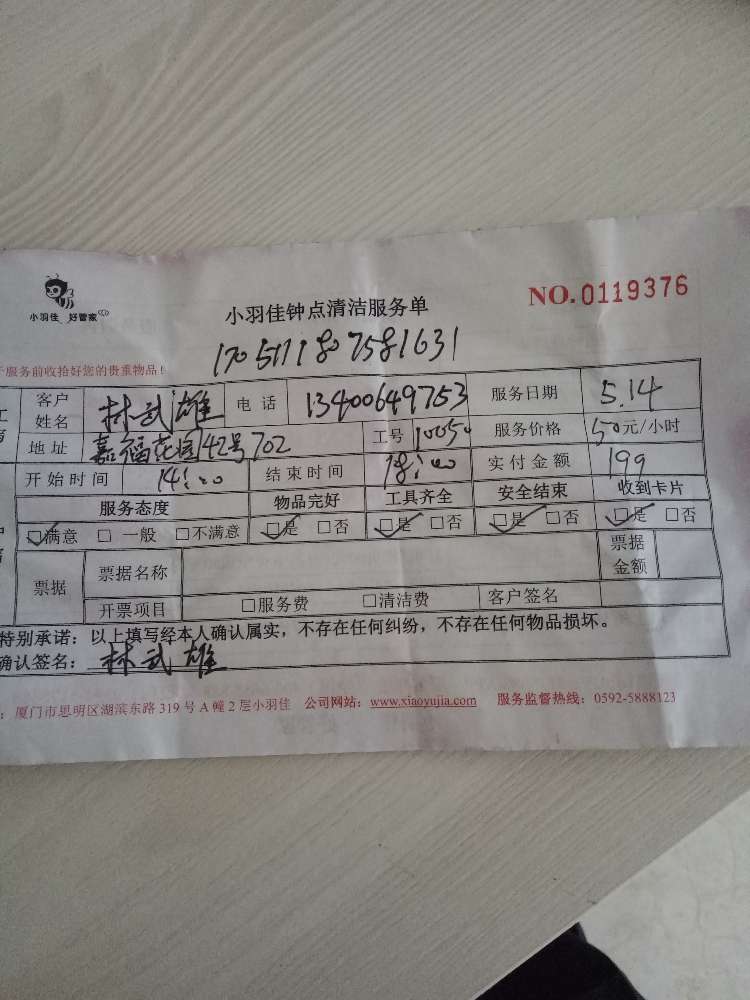 小羽佳 好管家
小羽佳钟点清洁服务单
NO.0119376
1705111807581631
于服务前收拾好您的贵重物品!
客户姓名 林武雄 电话 13400649753 服务日期 5.14
地址 嘉福花园42号702 工号 10050 服务价格 50元/小时
开始时间 14:00 结束时间 18:00 实付金额 199
服务态度 物品完好 工具齐全 安全结束 收到卡片
☑满意 □一般 □不满意 ☑是 □否 ☑是 □否 ☑是 □否 ☑是 □否
票据 票据名称 票据金额
开票项目 □服务费 □清洁费 客户签名
特别承诺:以上填写经本人确认属实,不存在任何纠纷,不存在任何物品损坏。
确认签名:林武雄
:厦门市思明区湖滨东路319号A幢2层小羽佳 公司网站:www.xiaoyujia.com 服务监督热线:0592-5888123